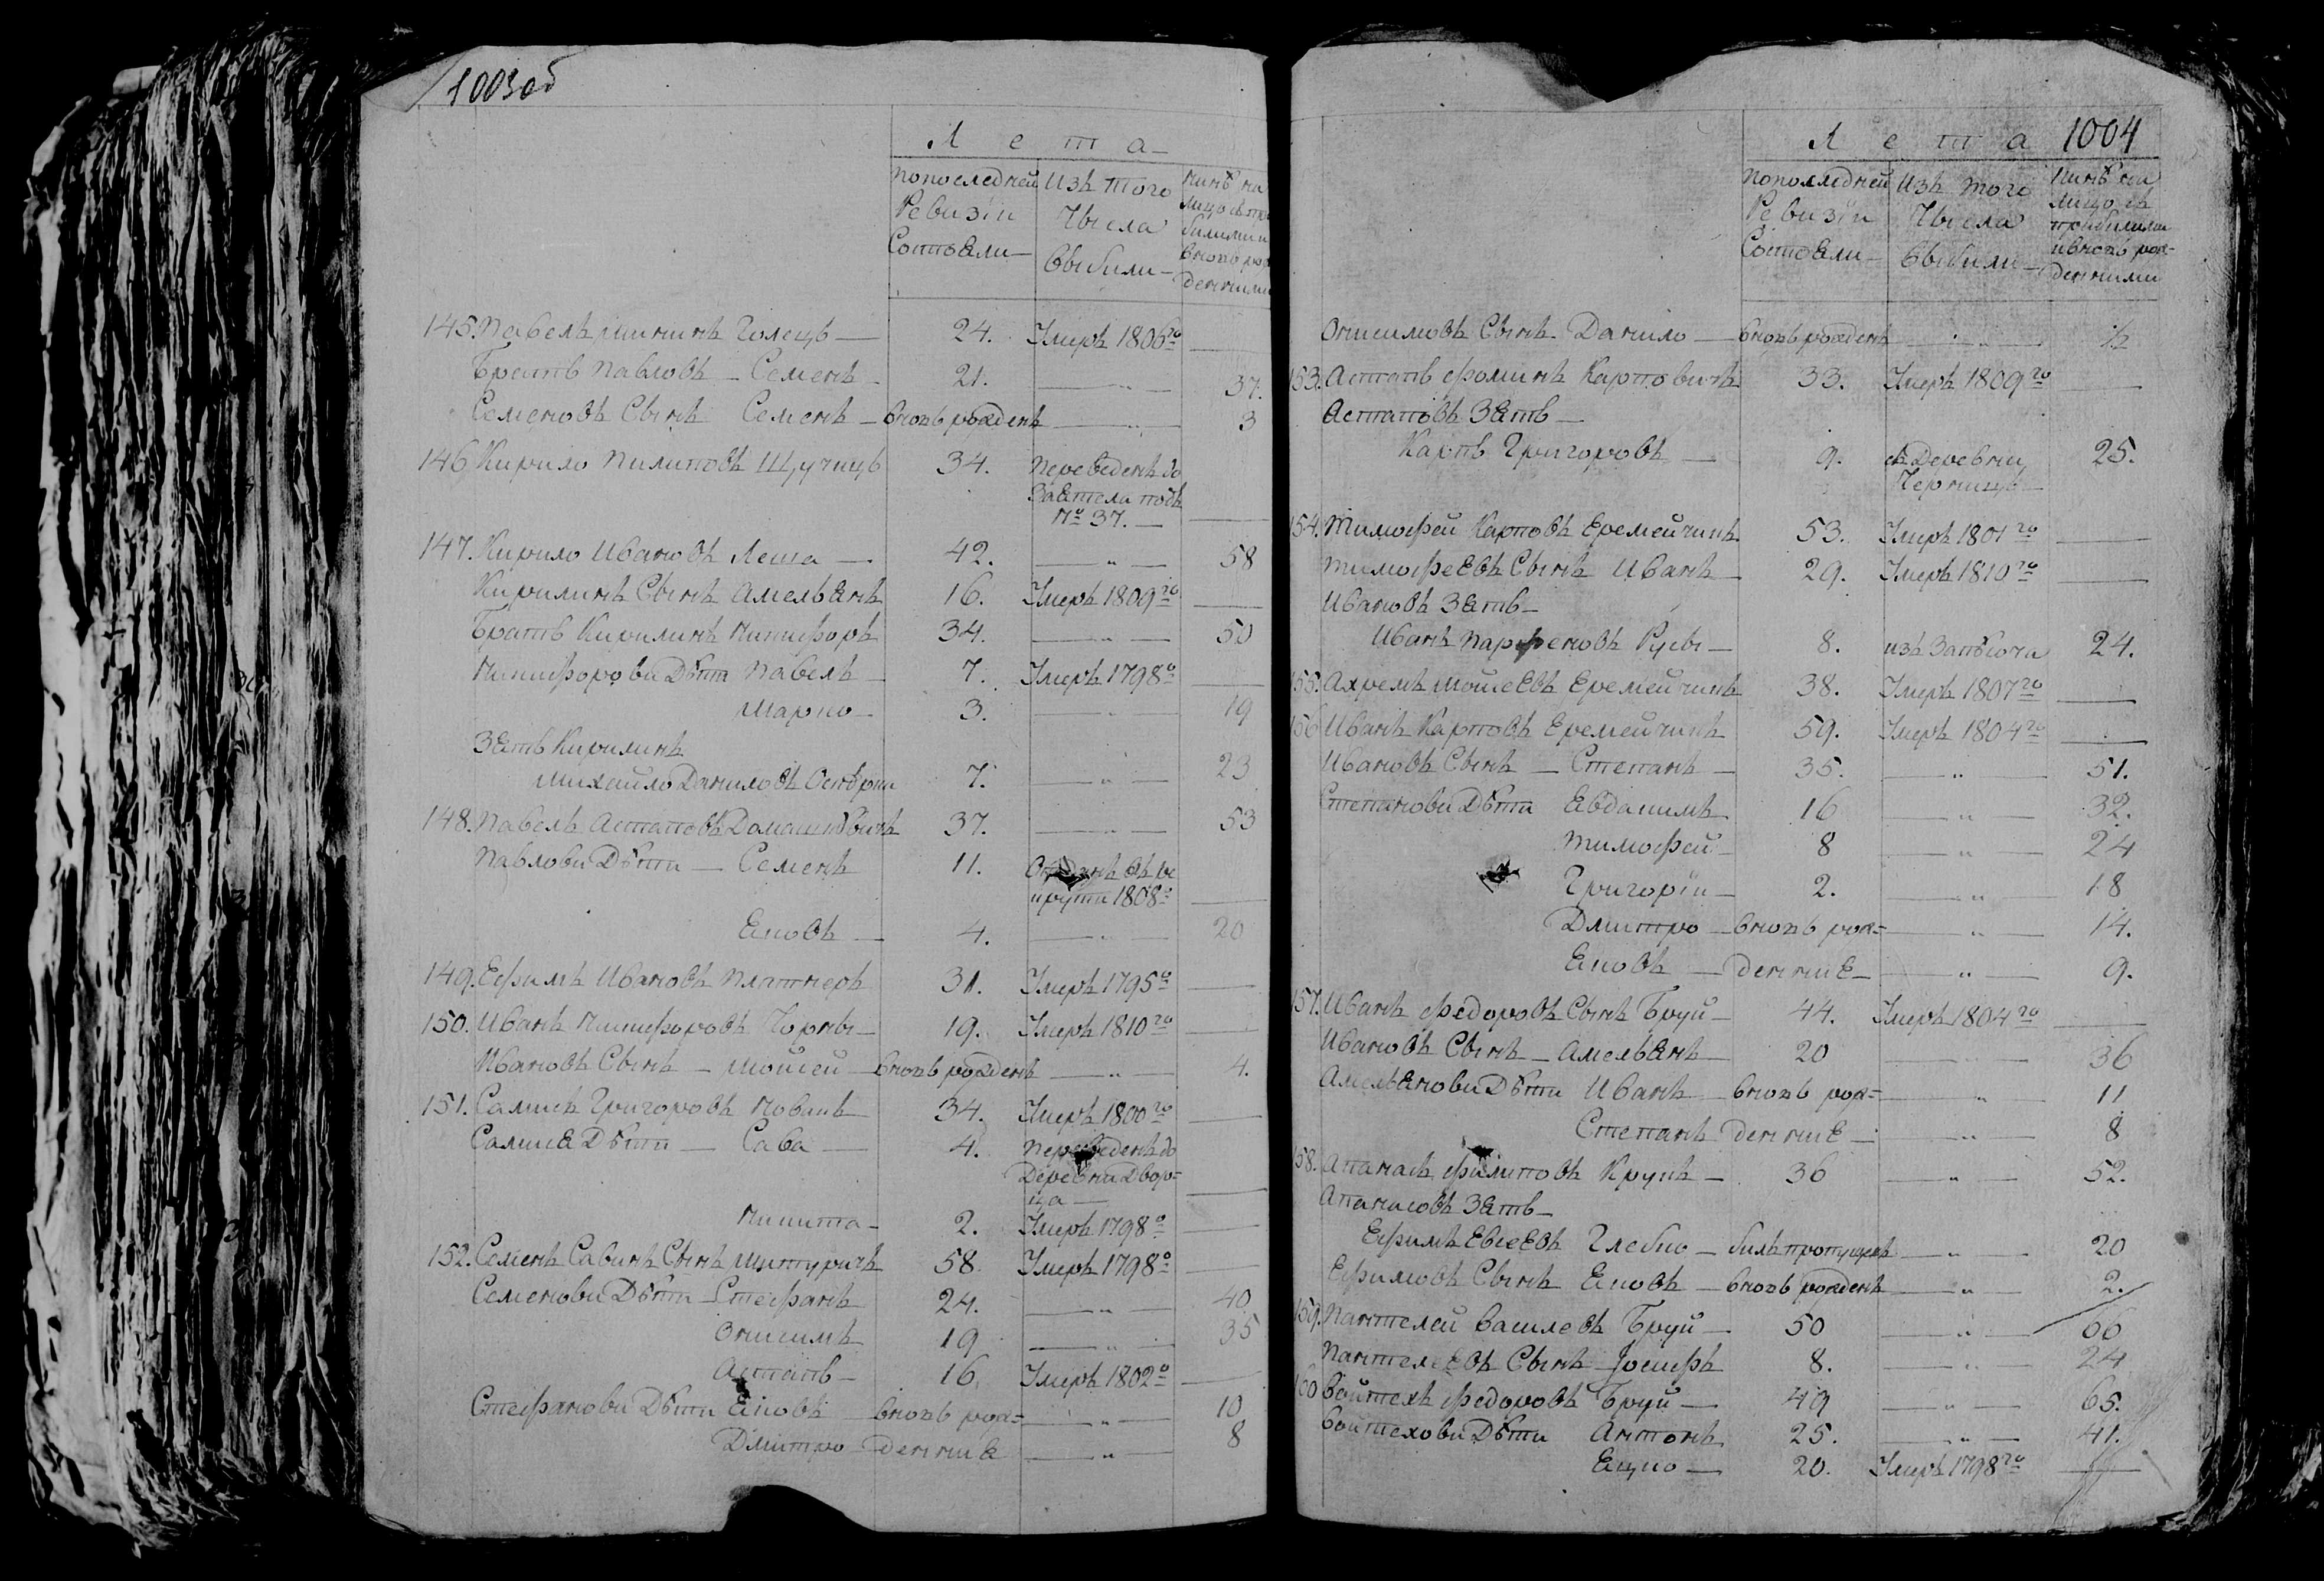 1003об
Лета
По последней Ревизiи Состояли
Изъ того Числа Выбили
Нинѣ на лицо съ при билими и вновь рож денними
145. Павелъ Голецъ — 24. Умеръ 1806го —
Братъ Павловъ — Семенъ — 21. — " — 37.
Семеновъ Сынъ Семенъ — вновь рожденъ — " — 3
146. Кирило Пилиповъ Щучицъ 34. Переведенъ до
Заетела подъ
№ 37. —
147. Кирило Ивановъ Леша — 42. — " — 58
Кирилинъ Сынъ Амельянъ 16. Умеръ 1809го —
Братъ Кирилинъ Никифоръ 34. — " — 50
Никифорови Дѣти Павелъ — 7. Умеръ 1798о —
Марко — 3. — " — 19
Зять Кирилинъ
Михайло Даниловъ 7. — " — 23
148. Павелъ Астаповъ Домашевичъ 37. — " — 53
Павлови Дѣти — Семенъ 11. Отданъ въ ре
крути 1808о —
Яковъ — 4. — " — 20
149. Ефимъ Ивановъ Платнеръ 31. Умеръ 1795о —
150. Иванъ Никифоровъ Чорны — 19. Умеръ 1810го —
Ивановъ Сынъ — Мойсей — вновь рожденъ — " — 4.
151. Самуси Григоровъ Новикъ 34. Умеръ 1800го —
Дѣти — Сава — 4. Переведенъ до
Деревни Двор-
ца —
Никита — 2. Умеръ 1798о —
152. Семенъ Савинъ Сынъ Шитуричъ 58. Умеръ 1798о —
Семенови Дѣти — Стефанъ 24. — " — 40
Онисимъ 19 — " — 35
Астапъ — 16 Умеръ 1802о —
Стефанови Дѣти Яковъ — вновь рож= — " — 10
Дмитро — денние — " — 8
1004
Лета
По последней Ревизiи Состояли
Изъ того Числа Выбили
Нинѣ на лицо съ прибилими и вновь рож- денними
Онисимовъ Сынъ Данило — вновь рожденъ — " — ½
153. Астапъ Фоминъ Карповичъ 33. Умеръ 1809го —
Астаповъ Зять —
Карпъ Григоровъ — 9. съ Деревни 25.
Черницъ —
154. Тимофей Карповъ Еремейчикъ 53. Умеръ 1801го —
Тимофеевъ Сынъ Иванъ — 29. Умеръ 1810го —
Ивановъ Зять —
Иванъ Парфеновъ Русы — 8. изъ 24.
155. Ахремъ Мойсеевъ Еремейчикъ 38. Умеръ 1807го —
156. Иванъ Карповъ Еремейчикъ 59. Умеръ 1804го —
Ивановъ Сынъ — Степанъ — 35. — " — 51.
Степанови Дѣти Евдакимъ 16 — " — 32.
Тимофей — 8 — " — 24
Григорiй — 2. — " — 18
Дмитро — вновь рож= — " — 14.
Яковъ — денние — " — 9.
157. Иванъ Федоровъ Сынъ Бруй — 44. Умеръ 1804го —
Ивановъ Сынъ — Амельянъ — 20 — " — 36
Амельянови Дѣти Иванъ — вновь рож= — " — 11
Степанъ денние — " — 8
158. Апанасъ Филиповъ Крукъ — 36 — " — 52.
Апанасовъ Зять —
Ефимъ Евсеевъ Глебко — билъ пропущенъ — " — 20
Ефимовъ Сынъ Яковъ — вновь рожденъ — " — 2.
159. Пантелей Василевъ Бруй — 50 — " — 66
Пантелеевъ Сынъ Iосифъ 8. — " — 24
160 Войтехъ Федоровъ Бруй — 49 — " — 65.
Войтехови Дѣти Антонъ 25. — " — 41.
Яцко — 20. Умеръ 1798го —